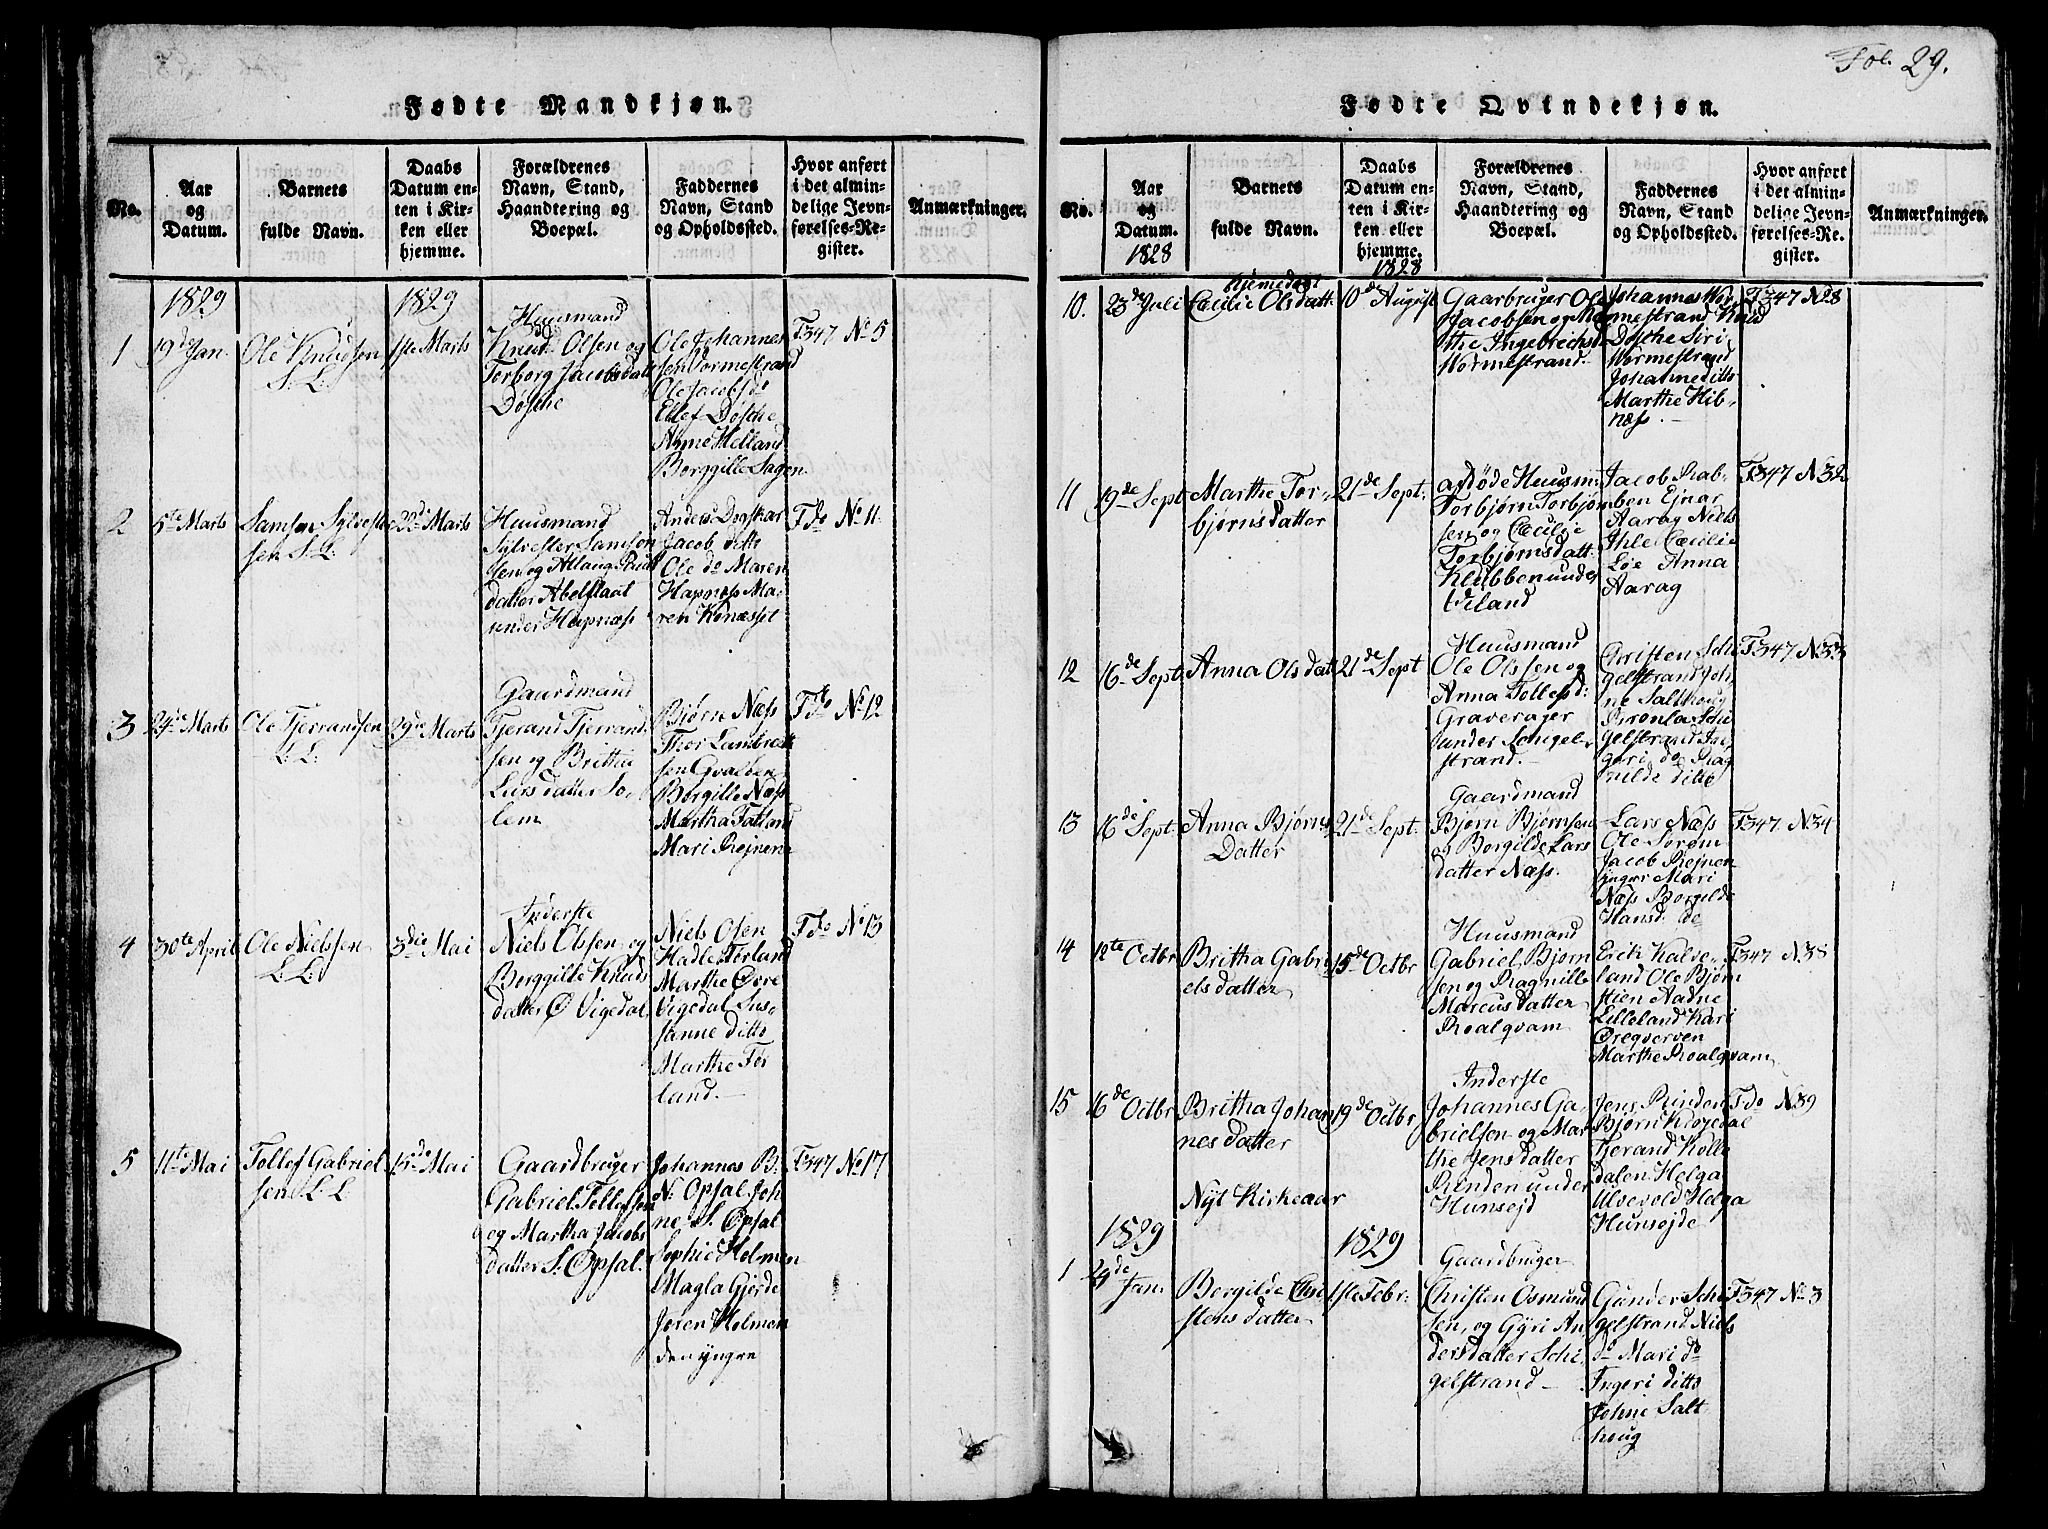 Fødte Mandkjøn.
No.
Aar
og
Datum.
Barnets
fulde Navn.
Daabs
Datum en-
ten i Kir-
ken eller
hjemme.
Forældrenes
Navn, Stand,
Haandtering og
Boepæl.
Faddernes
Navn, Stand
og Opholdssted.
Hvor anført
i det almin-
delige Jevn-
førelses-Re-
gister.
Anmærkninger.
1829
1829
1
19de Jan.
Ole Knudsen
S. L.
1ste Marts
Huusmand
Knud Olsen og
Torborg Jacobsdatt
Døsche
Ole Johannes
sen Vormestrand
Ole Jacobs do
Ellef Døsche
Arne Helland
Borggille Sagen
T347 No 5
2
5te Marts
Samson Sylvester
sen S. L.
22de Marts
Huusmand
Sylvester Samson
sen og Atlaug Knud
datter Abelstaat
under Hapnæss
Anders Dragskar
Jacob ditto
Ole do Maren
Hapnæss Ma-
ren Konæsset
T do No 11
3
29de Marts
Ole Tjerrandsen
L. L.
29de Marts
Gaardmand
Tjerand Tjerrand
sen og Britha
Lars datter So-
lem
Bjørn Næss
Thor Lambrecht
sen Qvalben
Borgille Næss
Martha Tatland
Mari Røjnene
T do No 12
4
30te April
Ole Nielssen
L. L.
3die Mai
Inderste
Niels Olssen og
Borggille Knuds
datter Ø Vigedal
Niels Olsen
Hadle Førland
Marthe Øvre
Vigedal Sus-
sanne ditto
Marthe Før
land.
T do No 13
5
11te Mai
Tollef Gabriel
sen S. L.
15de Mai
Gaardbruger
Gabriel Tollefsen
og Martha Jacobs
datter S. Opsal.
Johannes B.
N. Opsal Joh
ne S. Opsal
Sophie Holmen
Magla Gjerde
Joren Holmen
den yngre
T347 No 17
Fol. 29.
Fødte Qvindekjøn.
No.
Aar
og
Datum.
1828
Barnets
fulde Navn.
Daabs
Datum en-
ten i Kir-
ken eller
hjemme.
1828
Forældrenes
Navn, Stand,
Haandtering og
Boepæl.
Faddernes
Navn, Stand
og Opholdssted.
Hvor anført
i det almin-
delige Jevn-
førelses-Re-
gister.
Anmærkninger.
10.
23de Juli
hjemedøbt
Cæcilie Olsdatt.
10de August
Gaarbruger Ole
Jacobsen og Mar
the Ingebrechtsd
Wormestrand.
Johannes Wor
mestrand Knud
Døsche Siri
Wormestrand
Johanne ditto
Marthe Hib-
næss.
T347 N28
11
19de Sept.
Marthe Tor-
bjørnsdatter
21de Sept.
afdøde Huusm.
Torbjørn Torbjørn
sen og Cæcilie
Torbjørnsdatt.
Klubben under
Wiland
Jacob Rab-
ben Ejnar
Aarag Niels
Ihle Cæcilie
Løe Anna
Aarag
T347 N32
12
16de Sept.
Anna Olsdatt
21de Sept
Huusmand
Ole Olssen og
Anna Tollefsd:
Graverager
under Schigel-
strand.
Christen Schi
gelstrand Joh
ne Salthoug
Pironla Schi
gelstrand In-
geri do Rag
nilde ditto
T347 N33
13
16de Sept.
Anna Bjørns
Datter
21de Sept.
Gaardmand
Bjørn Bjørnsen
og Borgilde Lars
datter Næss.
Lars Næss
Ole Sørøm
Jacob Røjnen
Ingeer Mari
Næss Borgilde
Hansd. de
T347 N34
14
12te Octbr
Britha Gabri
elsdatter
15de Octbr
Huusmand
Gabriel Bjørn
sen og Ragnille
Marcus datter
Roalqvam
Erik Kalve-
land Ole Bjørn
stien Aadne
Lilleland Kari
Øreqverven
Marthe Roalqvam
T347 N38
15
16de Octbr
Britha Johan
nesdatter
19de Octbr
Inderste
Johannes Ga-
brielsen og Mar
the Jensdatter
Rinden under
Hunsøjd
Jens Rinden
Bjørn Krogedal
Tjerand Kolle
dalen Helga
Ulvevold Helga
Hunsøjde
T do N39
Nyt Kirkeaar
1829
1829
1
29de
Jan.
Borgilde Chri
stensdatter
1ste Febr.
Gaardbruger
Christen Osmund
sen, og Gyri An
dersdatter Schi
gelstrand
Gunder Schi
gelstrand Niels
do Mari do
Ingeri ditto
Johne Salt
houg
T347 No 3